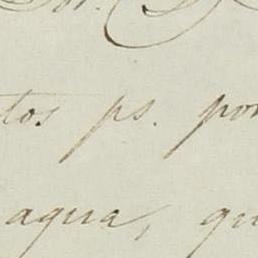 tos ps. por
agua, qu